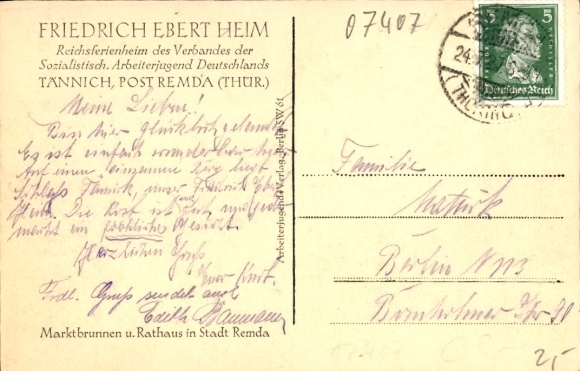 FRIEDRICH EBERT HEIM
Reichsferienheim des Verbandes der
Sozialistisch. Arbeiterjugend Deutschlands
TÄNNICH, POST REMDA (THÜR.)
07407
5 5
Deutsches Reich
Meine Lieben!
Bin hier glücklich
Es ist einfach wunderbar hier
Auf einem einsamen Berg liegt
Schloss Tännich, unser Friedrich Eber
Heim. Die Kost ist sehr gut und jeder
macht ein fröhliches Gesicht.
Herzlichen Gruss
Euer Kurt.
Frdl. Gruss sendet auch
Edith Baumann
Marktbrunnen u. Rathaus in Stadt Remda
Arbeiterjugend-Verlag, Berlin SW. 61
Familie
Berlin N 113
Bornholmer Str 90
2,-